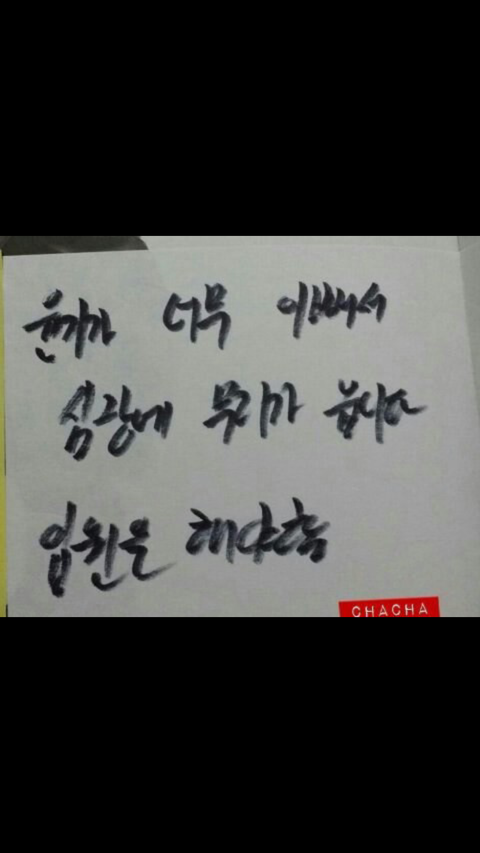 윤기가 너무 이뻐서
심장에 무리가 옵니다
입원을 해야함
CHACHA